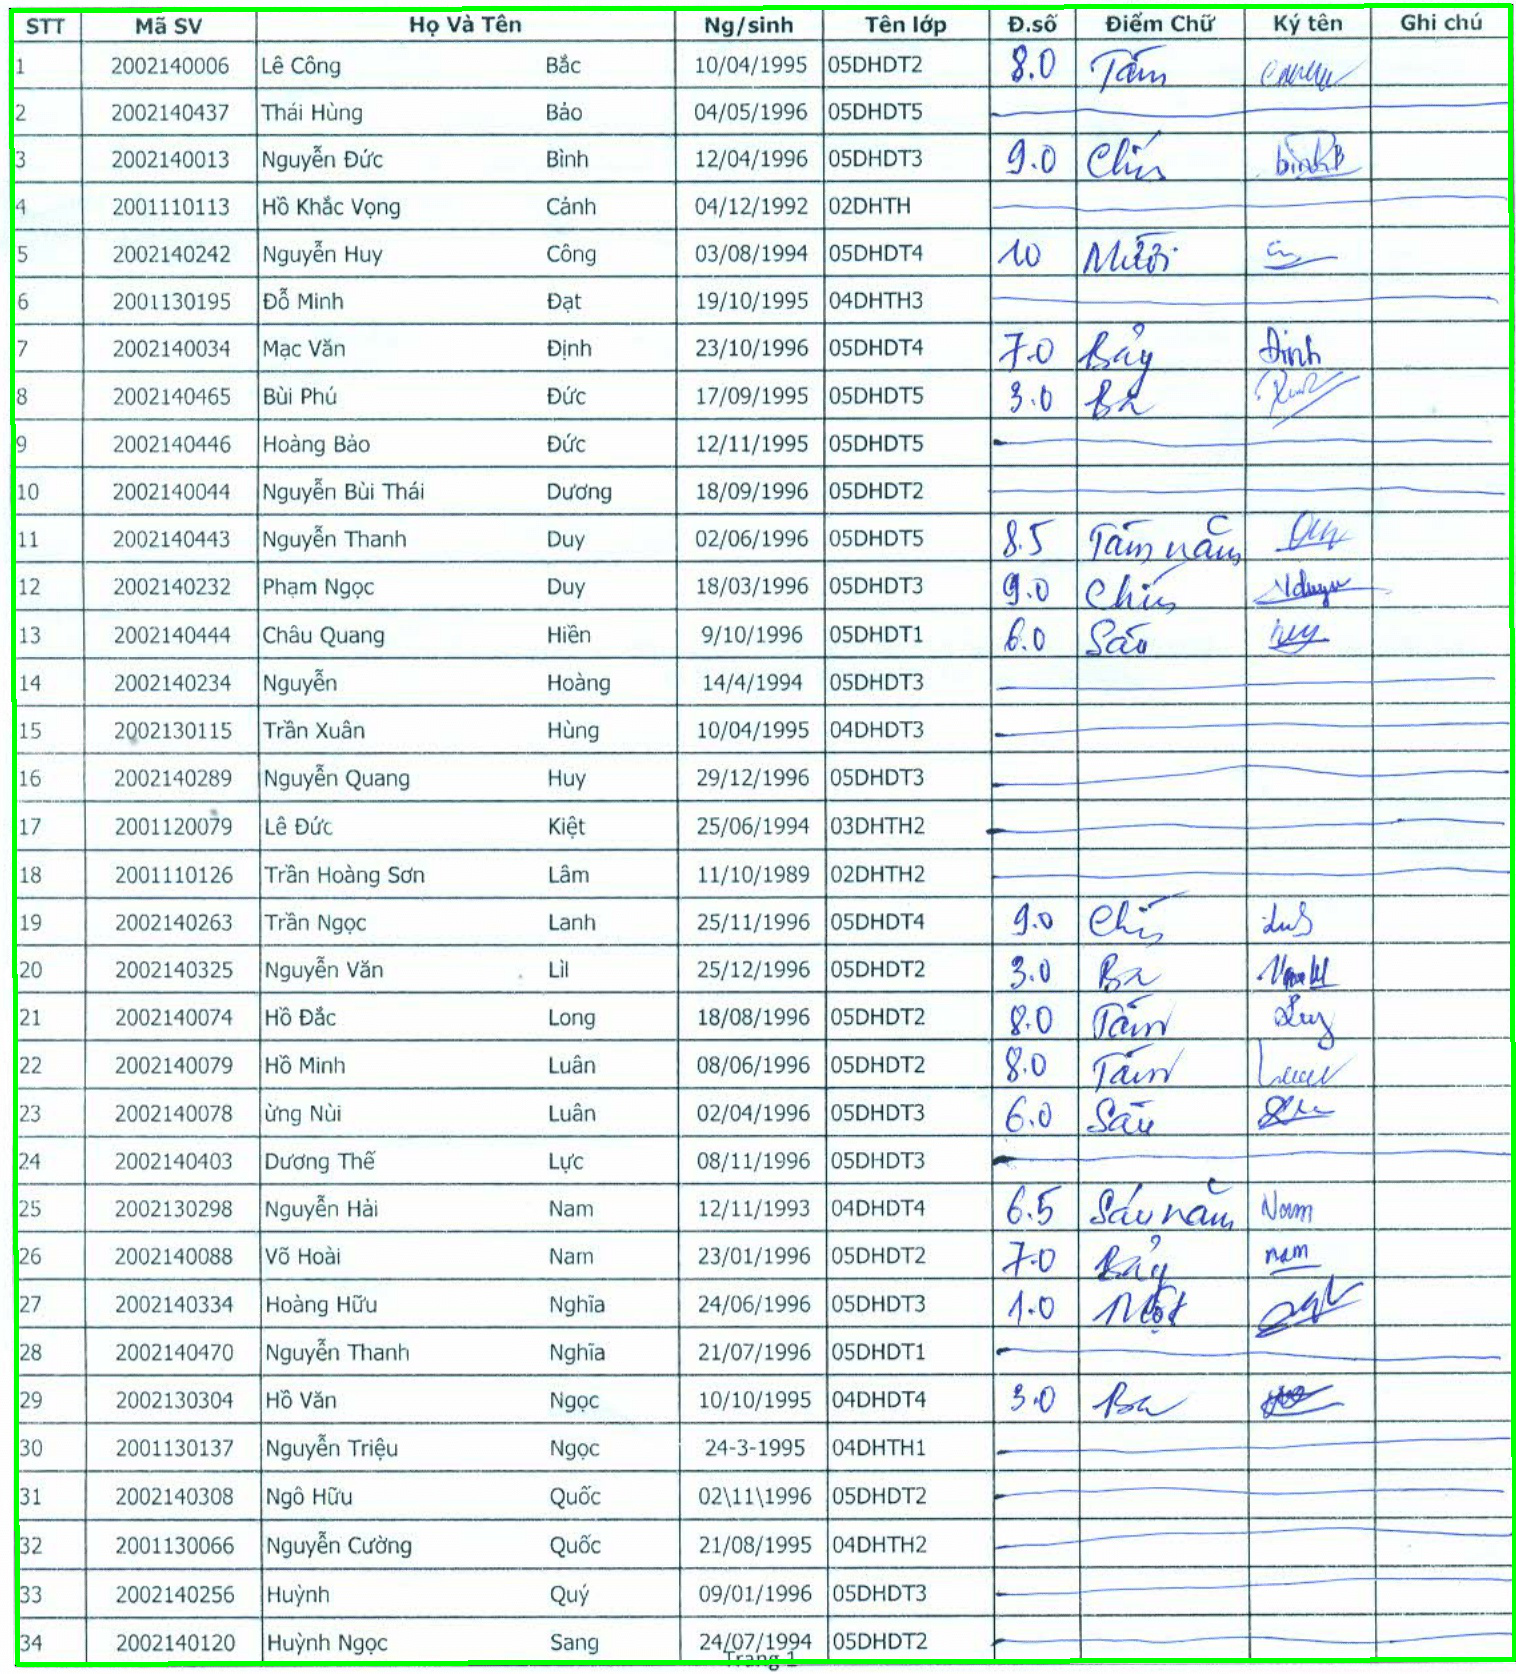 STT Mã SV Họ Và Tên Ng/sinh Tên lớp Đ.số Điểm Chữ Ký tên Ghi chú
1 2002140006 Lê Công Bắc 10/04/1995 05DHDT2 8.0 Tám
2 2002140437 Thái Hùng Bảo 04/05/1996 05DHDT5
3 2002140013 Nguyễn Đức Bình 12/04/1996 05DHDT3 9.0 Chín
4 2001110113 Hồ Khắc Vọng Cảnh 04/12/1992 02DHTH
5 2002140242 Nguyễn Huy Công 03/08/1994 05DHDT4 10 Mười
6 2001130195 Đỗ Minh Đạt 19/10/1995 04DHTH3
7 2002140034 Mạc Văn Định 23/10/1996 05DHDT4 7.0 Bảy Định
8 2002140465 Bùi Phú Đức 17/09/1995 05DHDT5 3.0 Ba
9 2002140446 Hoàng Bảo Đức 12/11/1995 05DHDT5
10 2002140044 Nguyễn Bùi Thái Dương 18/09/1996 05DHDT2
11 2002140443 Nguyễn Thanh Duy 02/06/1996 05DHDT5 8.5 Tám năm
12 2002140232 Phạm Ngọc Duy 18/03/1996 05DHDT3 9.0 Chín
13 2002140444 Châu Quang Hiền 9/10/1996 05DHDT1 6.0 Sáu
14 2002140234 Nguyễn Hoàng 14/4/1994 05DHDT3
15 2002130115 Trần Xuân Hùng 10/04/1995 04DHDT3
16 2002140289 Nguyễn Quang Huy 29/12/1996 05DHDT3
17 2001120079 Lê Đức Kiệt 25/06/1994 03DHTH2
18 2001110126 Trần Hoàng Sơn Lâm 11/10/1989 02DHTH2
19 2002140263 Trần Ngọc Lanh 25/11/1996 05DHDT4 9.0 Chín
20 2002140325 Nguyễn Văn Lìl 25/12/1996 05DHDT2 3.0 Ba
21 2002140074 Hồ Đắc Long 18/08/1996 05DHDT2 8.0 Tám
22 2002140079 Hồ Minh Luân 08/06/1996 05DHDT2 8.0 Tám
23 2002140078 ừng Nùi Luân 02/04/1996 05DHDT3 6.0 Sáu
24 2002140403 Dương Thế Lực 08/11/1996 05DHDT3
25 2002130298 Nguyễn Hải Nam 12/11/1993 04DHDT4 6.5 Sáu năm Nam
26 2002140088 Võ Hoài Nam 23/01/1996 05DHDT2 7.0 Bảy nam
27 2002140334 Hoàng Hữu Nghĩa 24/06/1996 05DHDT3 1.0 Một
28 2002140470 Nguyễn Thanh Nghĩa 21/07/1996 05DHDT1
29 2002130304 Hồ Văn Ngọc 10/10/1995 04DHDT4 3.0 Ba
30 2001130137 Nguyễn Triệu Ngọc 24-3-1995 04DHTH1
31 2002140308 Ngô Hữu Quốc 02\11\1996 05DHDT2
32 2001130066 Nguyễn Cường Quốc 21/08/1995 04DHTH2
33 2002140256 Huỳnh Quý 09/01/1996 05DHDT3
34 2002140120 Huỳnh Ngọc Sang 24/07/1994 05DHDT2
Trang 1